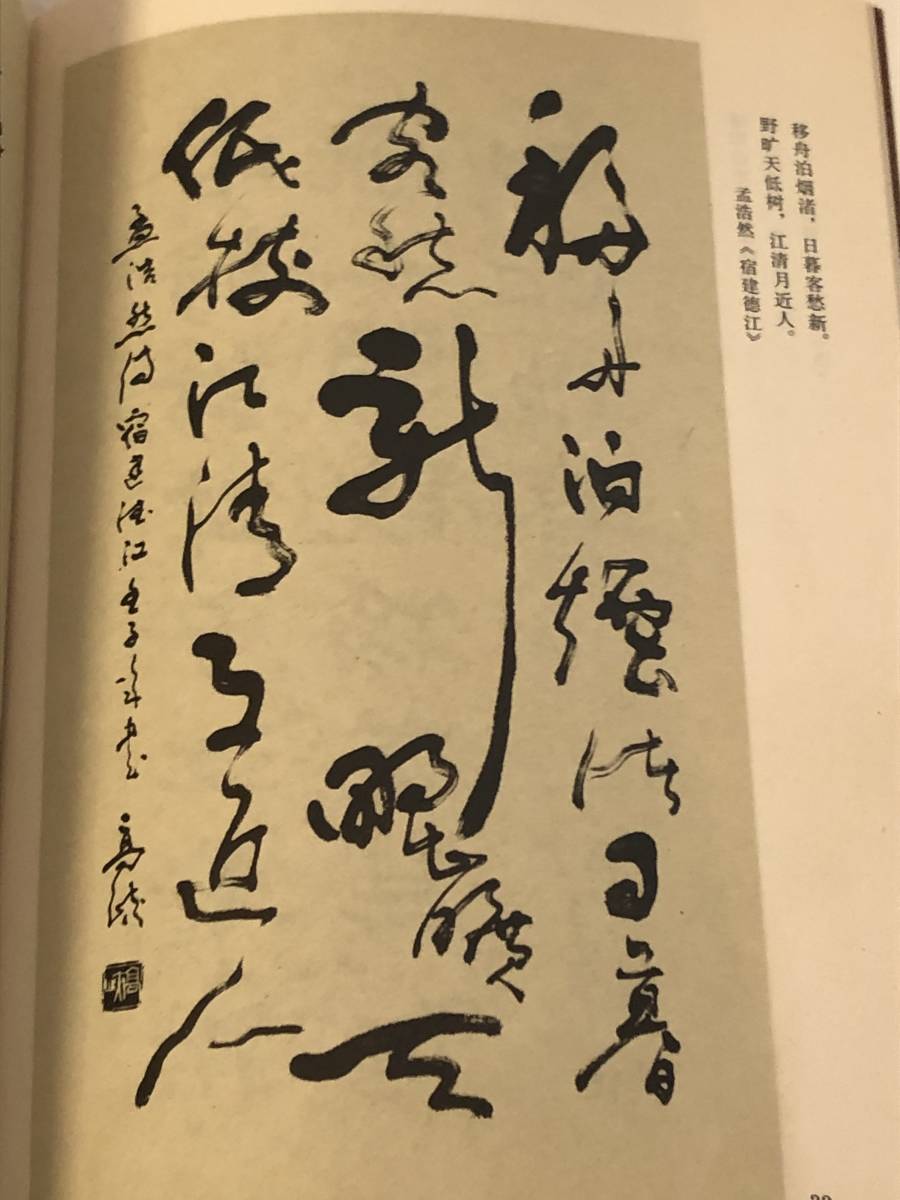 移舟泊烟渚，日暮客愁新。
野旷天低树，江清月近人。
孟浩然《宿建德江》
移舟泊煙渚日暮
客愁新野曠天
低樹江清月近人
孟浩然诗宿建德江壬子年书 高峽